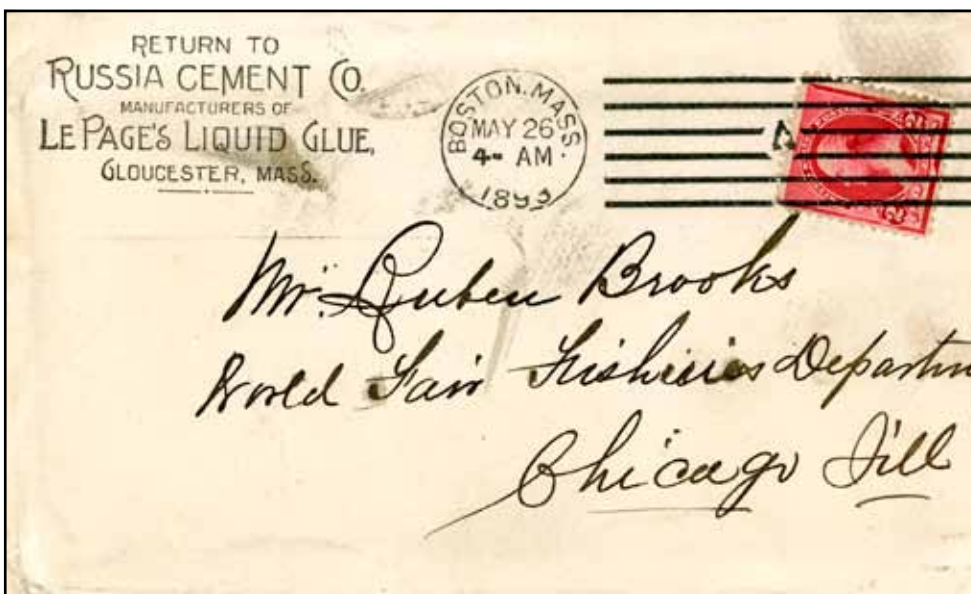 RETURN TO
RUSSIA CEMENT CO.
MANUFACTURERS OF
LE PAGE'S LIQUID GLUE,
GLOUCESTER, MASS.
BOSTON, MASS.
MAY 26
4- AM
1893
Mr. Ruben Brooks
World Fair Fishisies Departm
Chicago Ill